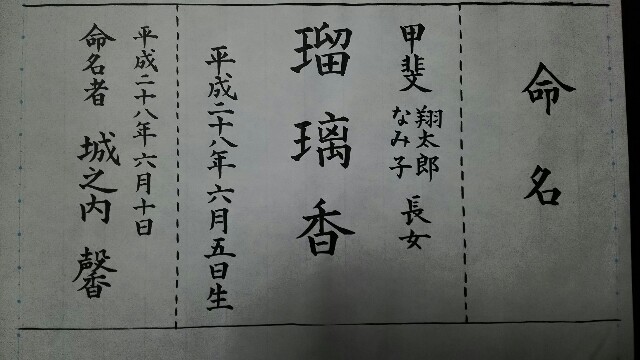 命名
甲斐 翔太郎 長女
なみ子
瑠璃香
平成二十八年六月五日生
平成二十八年六月十日
命名者 城之内 馨